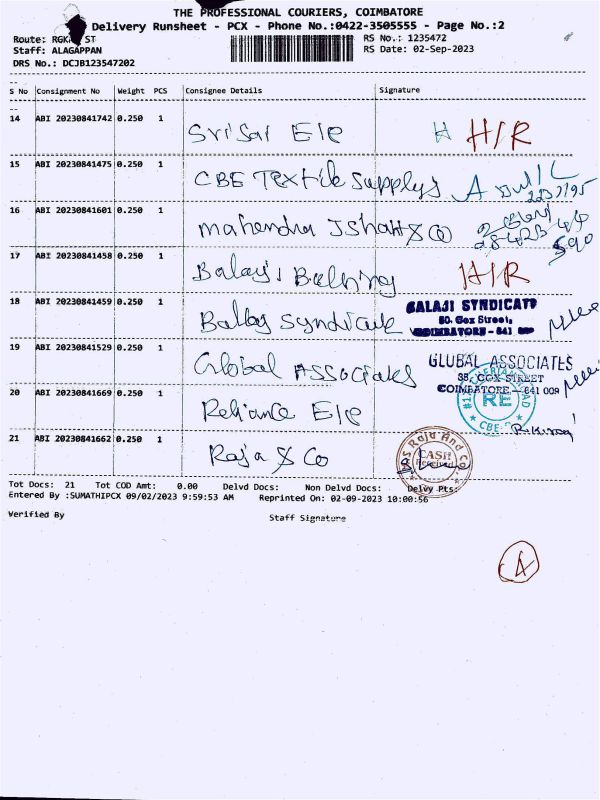 THE PROFESSIONAL COURIERS, COIMBATORE
Delivery Runsheet - PCX - Phone No.:0422-3505555 - Page No.:2
Route: ST
RS No.: 1235472
Staff: ALAGAPPAN
RS Date: 02-Sep-2023
DRS No.: DCJB123547202
S No Consignment No Weight PCS Consignee Details Signature
14 ABI 20230841742 0.250 1 Sri Sai Ele H/R
15 ABI 20230841475 0.250 1 CBE Textile Supplys
16 ABI 20230841601 0.250 1 Mahendra & Co
17 ABI 20230841458 0.250 1 Balaji H/R
18 ABI 20230841459 0.250 1 Syndicate
BALAJI SYNDICATE
60. Gox Street,
COIMBATORE - 641
19 ABI 20230841529 0.250 1 Global Associates
GLOBAL ASSOCIATES
38, COX STREET
COIMBATORE - 641 009
20 ABI 20230841669 0.250 1 Reliance Ele
RE
CBE-
21 ABI 20230841662 0.250 1 Raja & Co
Raja And Co.
CASH
Received
Tot Docs: 21 Tot COD Amt: 0.00 Delvd Docs: Non Delvd Docs: Delvy Pts:
Entered By :SUMATHIPCX 09/02/2023 9:59:53 AM Reprinted On: 02-09-2023 10:00:56
Verified By Staff Signature
A